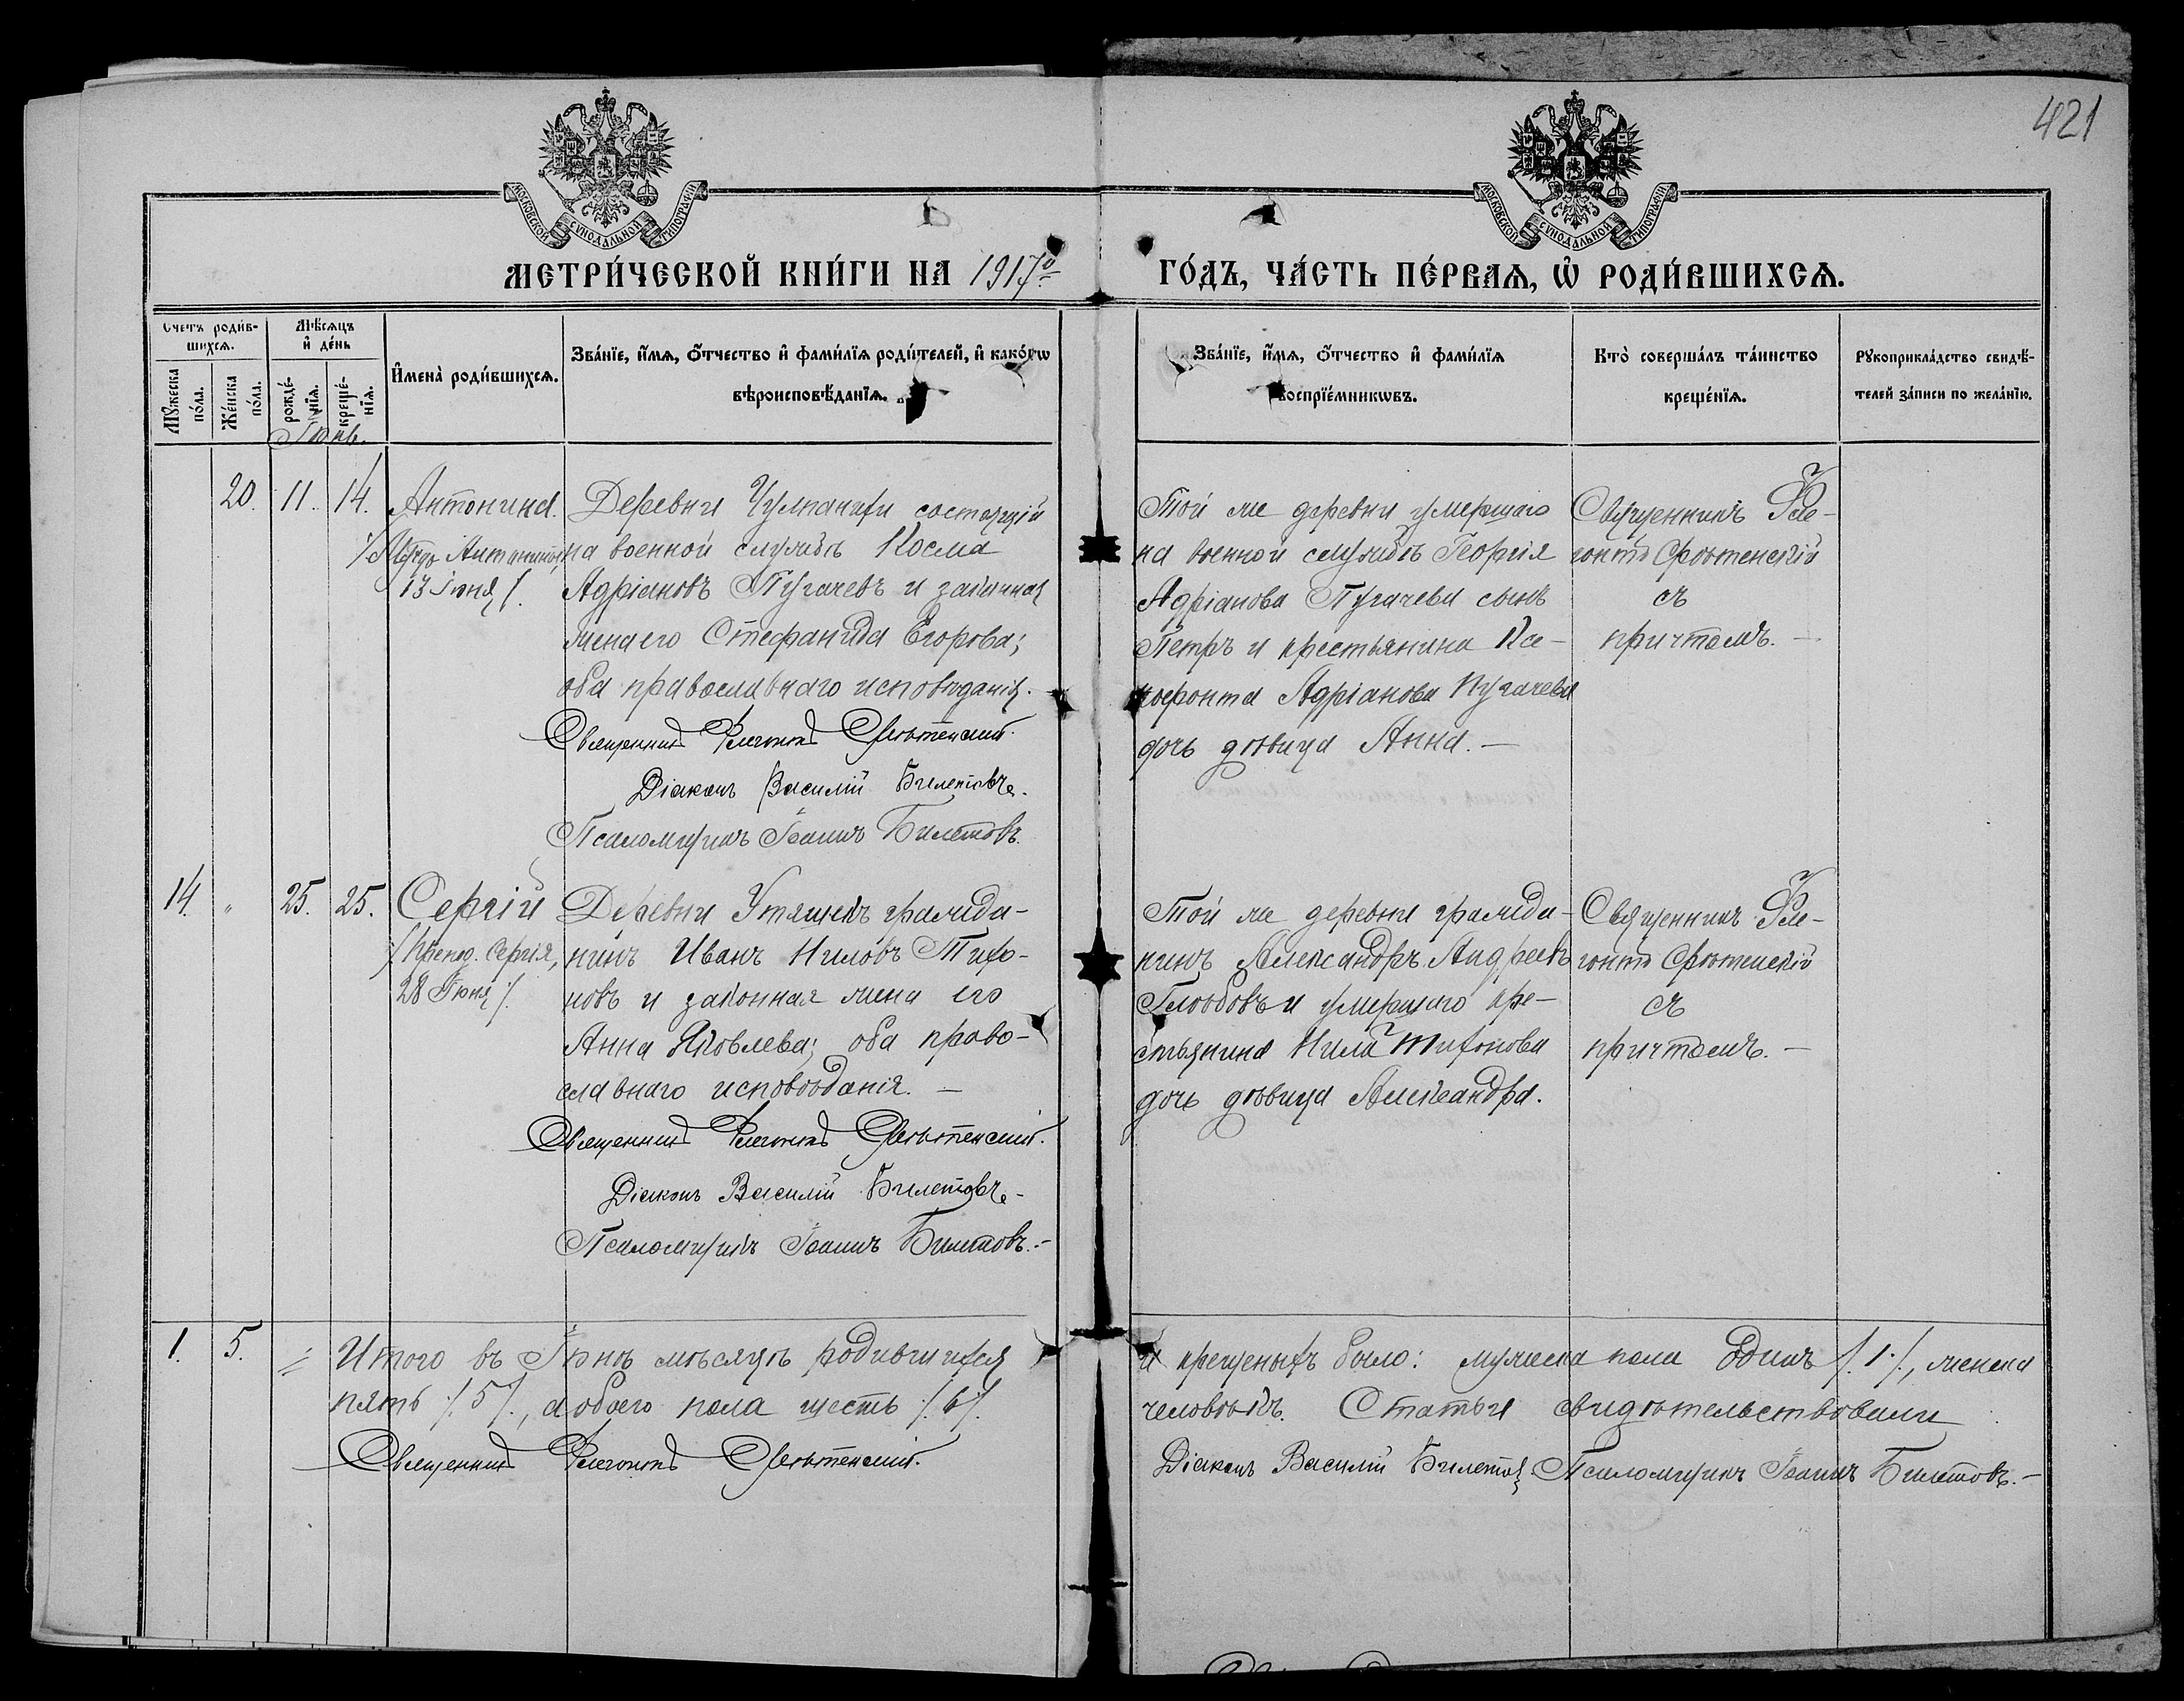 421
МОСКОВСКОЙ СѴНОДАЛЬНОЙ ТИПОГРАФІИ
МОСКОВСКОЙ СѴНОДАЛЬНОЙ ТИПОГРАФІИ
МЕТРИ́ЧЕСКОЙ КНИ́ГИ НА 1917й
ГО́ДЪ, ЧА́СТЬ ПЕ́РВАѦ, Ѽ РОДИ́ВШИХСѦ.
Счетъ роди́в-
шихсѧ.
Мѣ́сѧцъ
и҆ де́нь
Мꙋ́жеска
по́ла.
Же́нска
по́ла.
рожде́-
нїѧ.
креще́-
нїѧ.
И҆мена̀ роди́вшихсѧ.
Зва́нїе, и҆́мѧ, ѻ҆́тчество и҆ фами́лїѧ роди́телей, и҆ како́гѡ
вѣроисповѣ́данїѧ.
Зва́нїе, и҆́мѧ, ѻ҆́тчество и҆ фами́лїѧ
воспрїе́мникѡвъ.
Кто̀ соверша́лъ та́инство
креще́нїѧ.
Рꙋкоприкла́дство свидѣ́-
телей за́писи по жела́нїю.
Іюнь.
20. 11. 14. Антонина.
Антонины,
13 Іюня/.
Деревни Чулпанахи состоящій
на военной службѣ Косма
Адріановъ Пугачевъ и законная
жена его Стефанида Егорова;
оба православнаго исповѣданія.
Священникъ Флегонтъ Срѣтенскій.
Діаконъ Василій Билетовъ.
Псаломщикъ Іоаннъ Билетовъ.
Той же деревни умершаго
на военной службѣ Георгія
Адріанова Пугачева сынъ
Петръ и крестьянина Ксе-
нофонта Адріанова Пугачева
дочь дѣвица Анна. —
Священникъ Фле-
гонтъ Срѣтенскій
съ
причтомъ. —
14. „ 25. 25. Сергій
/Препод. Сергія,
28 Іюня/.
Деревни Утяшекъ гражда-
нинъ Иванъ Ниловъ Тихо-
новъ и законная жена его
Анна Яковлева; оба право-
славнаго исповѣданія. —
Священникъ Флегонтъ Срѣтенскій.
Діаконъ Василій Билетовъ.
Псаломщикъ Іоаннъ Билетовъ. —
Той же деревни гражда-
нинъ Александръ Андреевъ
Глѣбовъ и умершаго кре-
стьянина Нила Тихонова
дочь дѣвица Александра.
Священникъ Фле-
гонтъ Срѣтенскій
съ
причтомъ. —
1. 5. Итого въ Іюнѣ мѣсяцѣ родившихся
и крещеныхъ было: мужеска пола одинъ /.1./, женска
пять /.5/., а обоего пола шесть /.6/.
человѣкъ. Статьи свидѣтельствовали
Священникъ Флегонтъ Срѣтенскій.
Діаконъ Василій Билетовъ Псаломщикъ Іоаннъ Билетовъ. —